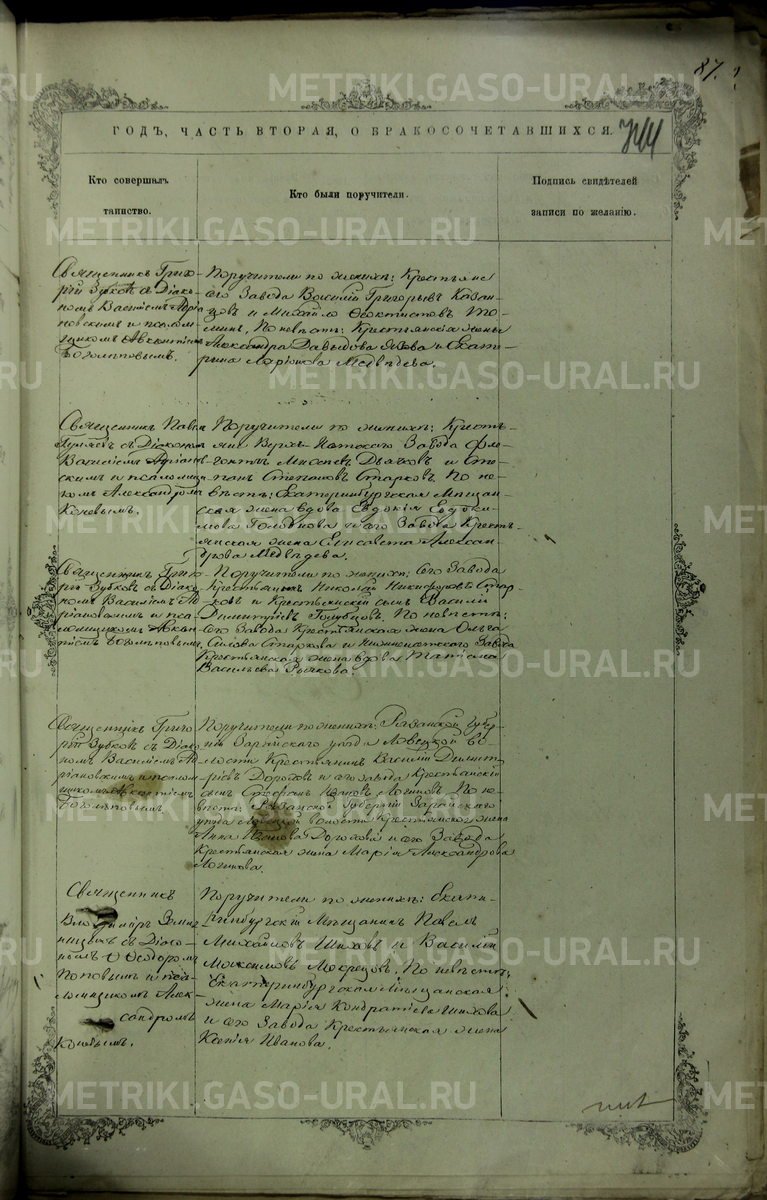 87.
ГОДЪ, ЧАСТЬ ВТОРАЯ, О БРАКОСОЧЕТАВШИХСЯ.
Кто совершалъ таинство.
Кто были поручители.
Подпись свидѣтелей записи по желанію.
Священникъ Григо-
рій Зубковъ съ Діако-
номъ Василіемъ Адріа-
новскимъ и псалом-
щикомъ
Боголѣповымъ.
Поручители по женихѣ: Крестьяне
сего Завода Василій Григорьевъ Казан-
цовъ и Михайло Ѳеоктистовъ То-
минъ, По невѣстѣ: Крестьянскія жены
Александра Давыдова и Екате-
рина Медвѣдева.
Священникъ Павелъ
съ Діакономъ
Василіемъ Адріанов-
скимъ и псаломщи-
комъ Александромъ
Коневымъ.
Поручители по женихѣ: Кресть-
яне Верхъ-Исетскаго Завода
Дьячковъ и Сте-
панъ Степановъ Старковъ По не-
вѣстѣ: Екатеринбургская Мѣщан-
ская жена вдова Евдокія Евдоки-
мова и сего Завода Кресть-
янская жена Елисавета Алексан-
дрова Медвѣдева.
Священникъ Григо-
рій Зубковъ съ Діако-
номъ Василіемъ Ад-
ріановскимъ и пса-
ломщикомъ
Боголѣповымъ.
Поручители по женихѣ: Сего Завода
Крестьянинъ Николай Никифоровъ Стар-
ковъ и Крестьянскій сынъ Василій
Димитріевъ Голубцовъ. По невѣстѣ:
Сего Завода Крестьянская жена Ольга
Старкова и Нижнеисетскаго Завода
Крестьянская жена вдова Татіана
Васильева Рычкова.
Священникъ Григо-
рій Зубковъ съ Діако-
номъ Василіемъ Ад-
ріановскимъ и псалом-
щикомъ
Боголѣповымъ.
Поручители по женихѣ: Рязанской Губер-
ніи Зарайскаго уѣзда Ловецкой во-
лости Крестьянинъ Василій Димит-
ріевъ Дороховъ и сего завода Крестьянскій
сынъ Стефанъ Ивановъ Логиновъ По не-
вѣстѣ: Рязанской Губерніи Зарайскаго
уѣзда Ловецкой волости Крестьянская жена
Анна Дорохова и сего Завода
Крестьянская жена Марія Александрова
Логинова.
Священникъ
Владиміръ Земля-
ницынъ съ Діако-
номъ Ѳеодоромъ
Поповымъ и пса-
ломщикомъ Алек-
сандромъ
Коневымъ.
Поручители по женихѣ: Екате-
ринбургскій Мѣщанинъ Павелъ
Михайловъ Шиховъ и Василій
Максимовъ Мокрецовъ. По невѣстѣ:
Екатеринбургская Мѣщанская
жена Марія Кондратіева Шихова
и сего Завода Крестьянская жена
Ксенія Иванова.
METRIKI.GASO-URAL.RU